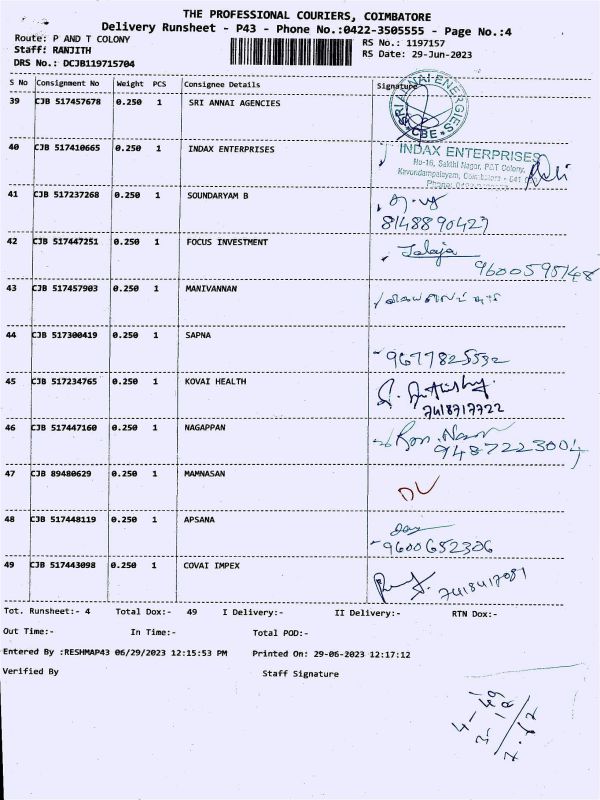 THE PROFESSIONAL COURIERS, COIMBATORE
Delivery Runsheet - P43 - Phone No.:0422-3505555 - Page No.:4
Route: P AND T COLONY
RS No.: 1197157
Staff: RANJITH
RS Date: 29-Jun-2023
DRS No.: DCJB119715704
S No Consignment No Weight PCS Consignee Details Signature
39 CJB 517457678 0.250 1 SRI ANNAI AGENCIES
SRI ANNAI ENERGIES
* CBE *
40 CJB 517410665 0.250 1 INDAX ENTERPRISES
INDAX ENTERPRISES
No-16, Sakthi Nagar, P&T Colony,
Kavundampalayam, Coimbatore - 641
41 CJB 517237268 0.250 1 SOUNDARYAM B
8148890427
42 CJB 517447251 0.250 1 FOCUS INVESTMENT
Jalaja
9600595148
43 CJB 517457903 0.250 1 MANIVANNAN
44 CJB 517300419 0.250 1 SAPNA
9677825532
45 CJB 517234765 0.250 1 KOVAI HEALTH
7418717722
46 CJB 517447160 0.250 1 NAGAPPAN
9487223004
47 CJB 89480629 0.250 1 MAMNASAN
DL
48 CJB 517448119 0.250 1 APSANA
9600652306
49 CJB 517443098 0.250 1 COVAI IMPEX
7418417081
Tot. Runsheet:- 4 Total Dox:- 49 I Delivery:- II Delivery:- RTN Dox:-
Out Time:- In Time:- Total POD:-
Entered By :RESHMAP43 06/29/2023 12:15:53 PM Printed On: 29-06-2023 12:17:12
Verified By Staff Signature